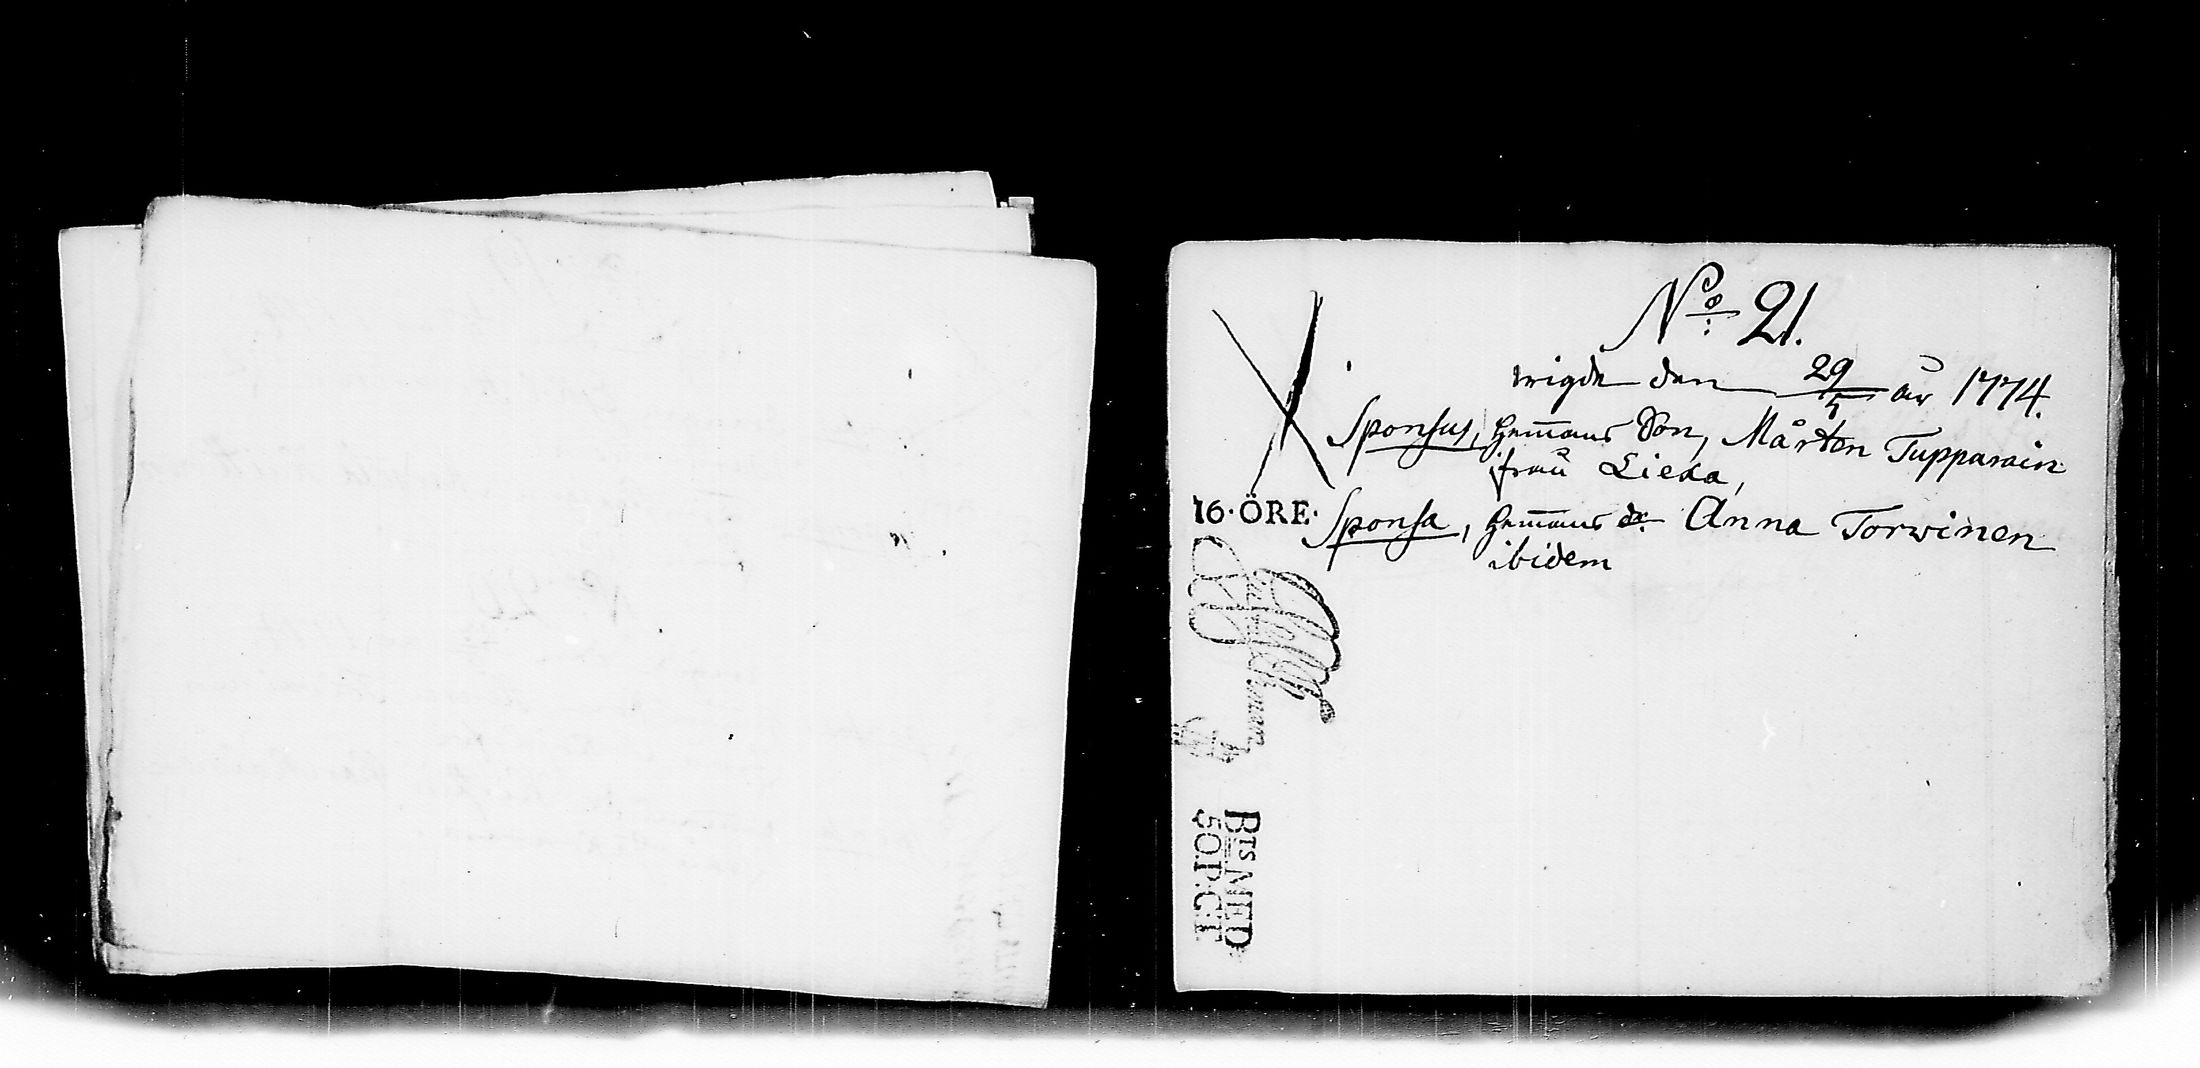 No: 21.
wigde den 29/5 år 1774.
Sponsus, Hem̅ans Son, Mårten Tupparain
ifrån Liexa,
16·ÖRE·
Sponsa, Hem̅ans dr. Anna Torwinen
ibidem
BTS MED
50.P:C:T